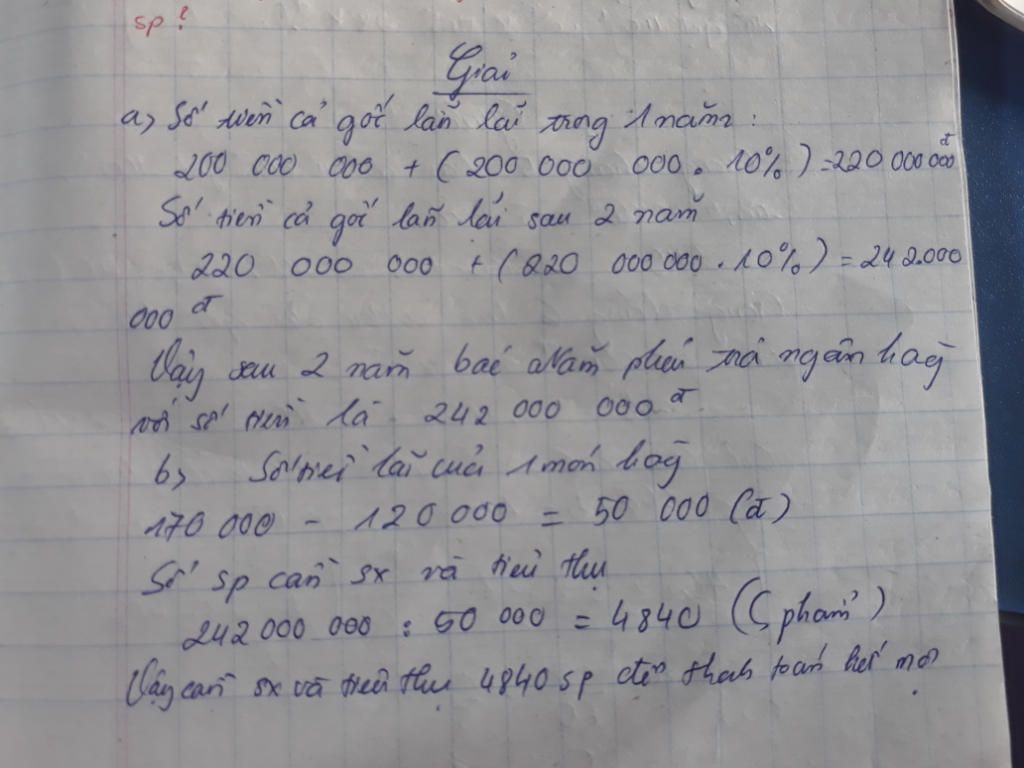 sp?
Giải
a, Số tiền cả gốc lẫn lãi trong 1 năm:
200 000 000 + (200 000 000 . 10%) = 220 000 000đ
Số tiền cả gốc lẫn lãi sau 2 năm
220 000 000 + (220 000 000 . 10%) = 242.000
000 đ
Vậy sau 2 năm bác Năm phải trả ngân hàg
với số tiền là 242 000 000 đ
b, Số tiền lãi của 1 món hàg
170 000 - 120 000 = 50 000 (đ)
Số sp cần sx và tiêu thụ
242 000 000 : 50 000 = 4840 (phẩm)
Vậy cần sx và tiêu thụ 4840 sp để thah toán hết nợ